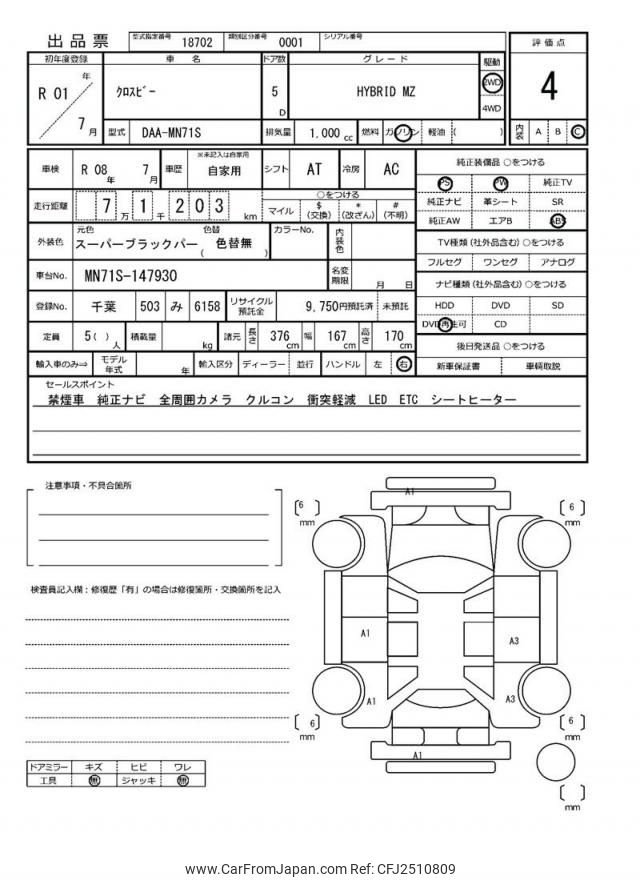 出品票 型式指定番号 18702 類別区分番号 0001 シリアル番号
初年度登録 車名 ドア数 グレード 駆動 評価点
R 01 年 7 月 ｸﾛｽﾋﾞｰ 5 D HYBRID MZ 2WD 4WD 4
型式 DAA-MN71S 排気量 1.000 cc 燃料 ガソリン 軽油 ( ) 内装 A B C
車検 R 08 年 7 月 車歴 ※未記入は自家用 自家用 シフト AT 冷房 AC
走行距離 7 万 1 千 2 0 3 km ○をつける
マイル $ (交換) * (改ざん) # (不明)
外装色 元色 スーパーブラックパー 色替 ( 色替無 ) カラーNo. 内装色
車台No. MN71S-147930 名変期限 月 日
登録No. 千葉 503 み 6158 リサイクル預託金 9,750円預託済 未預託
定員 5( ) 人 積載量 kg 諸元 長さ 376 cm 幅 167 cm 高さ 170 cm
輸入車のみ⇒ モデル年式 年 輸入区分 ディーラー 並行 ハンドル 左 右
純正装備品 ○をつける
PS PW 純正TV
純正ナビ 革シート SR
純正AW エアB ABS
TV種類 (社外品含む) ○をつける
フルセグ ワンセグ アナログ
ナビ種類 (社外品含む) ○をつける
HDD DVD SD
DVD再生可 CD
後日発送品 ○をつける
新車保証書 車輌取説
セールスポイント
禁煙車 純正ナビ 全周囲カメラ クルコン 衝突軽減 LED ETC シートヒーター
注意事項・不具合箇所
検査員記入欄：修復歴「有」の場合は修復箇所・交換箇所を記入
ドアミラー キズ ヒビ ワレ
工具 無 ジャッキ 無
A1
6 mm
6 mm
A1
A3
A1
A3
6 mm
6 mm
A1
mm
www.CarFromJapan.com Ref: CFJ2510809